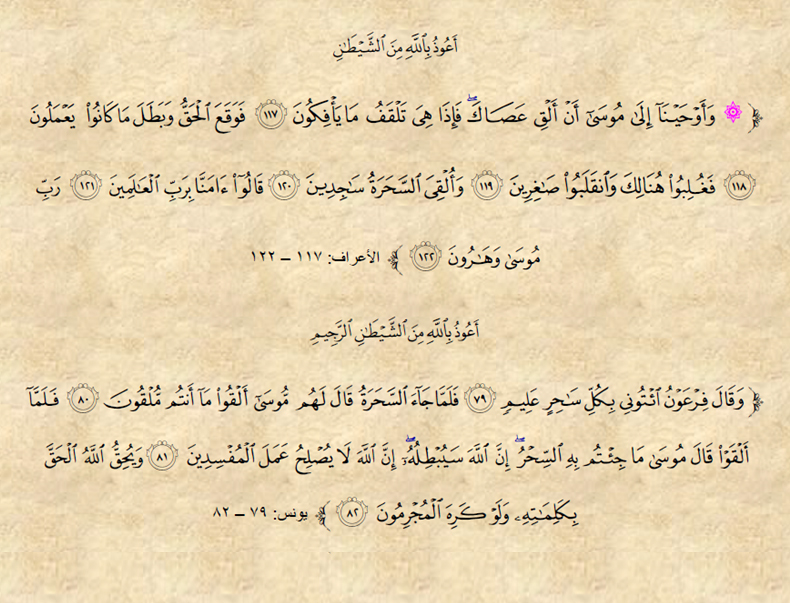 أَعُوذُ بِٱللَّهِ مِنَ ٱلشَّيْطَٰنِ
﴿ ۞ وَأَوْحَيْنَآ إِلَىٰ مُوسَىٰٓ أَنْ أَلْقِ عَصَاكَۖ فَإِذَا هِىَ تَلْقَفُ مَا يَأْفِكُونَ ١١٧ فَوَقَعَ ٱلْحَقُّ وَبَطَلَ مَا كَانُوا۟ يَعْمَلُونَ
١١٨ فَغُلِبُوا۟ هُنَالِكَ وَٱنقَلَبُوا۟ صَٰغِرِينَ ١١٩ وَأُلْقِىَ ٱلسَّحَرَةُ سَٰجِدِينَ ١٢٠ قَالُوٓا۟ ءَامَنَّا بِرَبِّ ٱلْعَٰلَمِينَ ١٢١ رَبِّ
مُوسَىٰ وَهَٰرُونَ ١٢٢ ﴾ الأعراف: ١١٧ – ١٢٢
أَعُوذُ بِٱللَّهِ مِنَ ٱلشَّيْطَٰنِ ٱلرَّجِيمِ
﴿ وَقَالَ فِرْعَوْنُ ٱئْتُونِى بِكُلِّ سَٰحِرٍ عَلِيمٍ ٧٩ فَلَمَّا جَآءَ ٱلسَّحَرَةُ قَالَ لَهُم مُّوسَىٰٓ أَلْقُوا۟ مَآ أَنتُم مُّلْقُونَ ٨٠ فَلَمَّآ
أَلْقَوْا۟ قَالَ مُوسَىٰ مَا جِئْتُم بِهِ ٱلسِّحْرُۖ إِنَّ ٱللَّهَ سَيُبْطِلُهُۥٓۖ إِنَّ ٱللَّهَ لَا يُصْلِحُ عَمَلَ ٱلْمُفْسِدِينَ ٨١ وَيُحِقُّ ٱللَّهُ ٱلْحَقَّ
بِكَلِمَٰتِهِۦ وَلَوْ كَرِهَ ٱلْمُجْرِمُونَ ٨٢ ﴾ يونس: ٧٩ – ٨٢